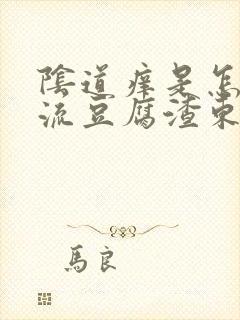 陰道痒是怎
流豆腐渣東
馬良